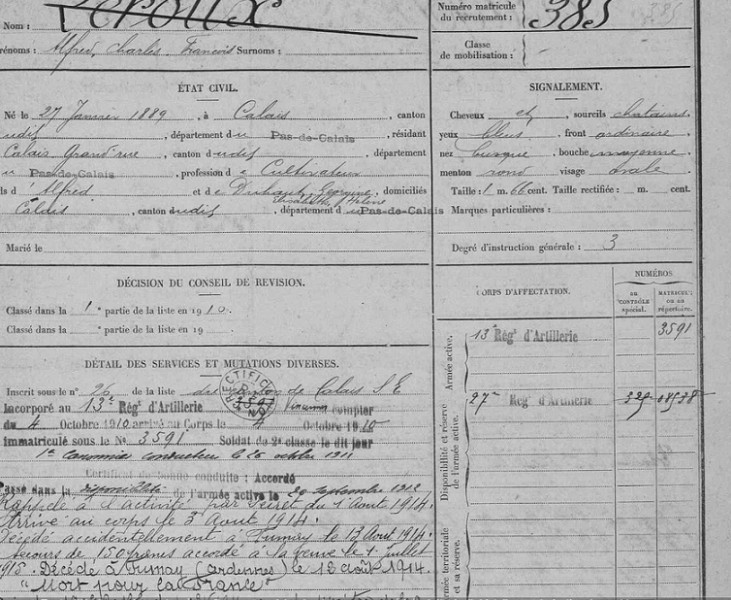 Nom : Leroux
Numéro matricule
du recrutement : 385
385
rénoms : Alfred, Charles, François Surnoms :
Classe
de mobilisation : -
ÉTAT CIVIL.
SIGNALEMENT.
Né le 27 Janvier 1889, à Calais, canton
udit, département du Pas-de-Calais, résidant
Calais Grand'rue, canton dudit, département
u Pas-de-Calais, profession de Cultivateur
ls d' Alfred et de Georgine, domiciliés
Elisabeth, Hélène
Calais, canton dudit, département du Pas-de-Calais
Marié le
Cheveux et sourcils chatains
yeux bleus, front ordinaire
nez busqué, bouche moyenne
menton rond visage ovale
Taille : 1 m. 66 cent. Taille rectifiée : m. cent.
Marques particulières :
Degré d'instruction générale : 3
DÉCISION DU CONSEIL DE REVISION.
Classé dans la 1e partie de la liste en 1910.
Classé dans la e partie de la liste en 19
CORPS D'AFFECTATION.
NUMÉROS
au
contrôle
spécial.
matricule
ou au
répertoire.
Armée active.
13e Régt d'Artillerie 3591
Disponibilité et réserve
de l'armée active.
27e Régt d'Artillerie
rmée territoriale
et sa réserve.
DÉTAIL DES SERVICES ET MUTATIONS DIVERSES.
Inscrit sous le n° 26 de la liste du canton de Calais S E
Incorporé au 13e Régt d'Artillerie à compter
du 4 Octobre 1910 arrivé au Corps le 4 Octobre 1910
immatriculé sous le No 3591 Soldat de 2e classe le dit jour
1er canonnier conducteur le 26 octobre 1911
Certificat de bonne conduite : Accordé
assé dans la disponibilité de l'armée active le 29 septembre 1912
Rappelé à l'activité par décret du 1 Aout 1914.
Arrivé au corps le 3 Aout 1914.
Décédé accidentellement à Fumay le 13 Aout 1914.
Secours de 150 francs accordé à la veuve le 1 juillet
1915. Décédé à Fumay (Ardennes) le 12 août 1914.
"Mort pour la France"